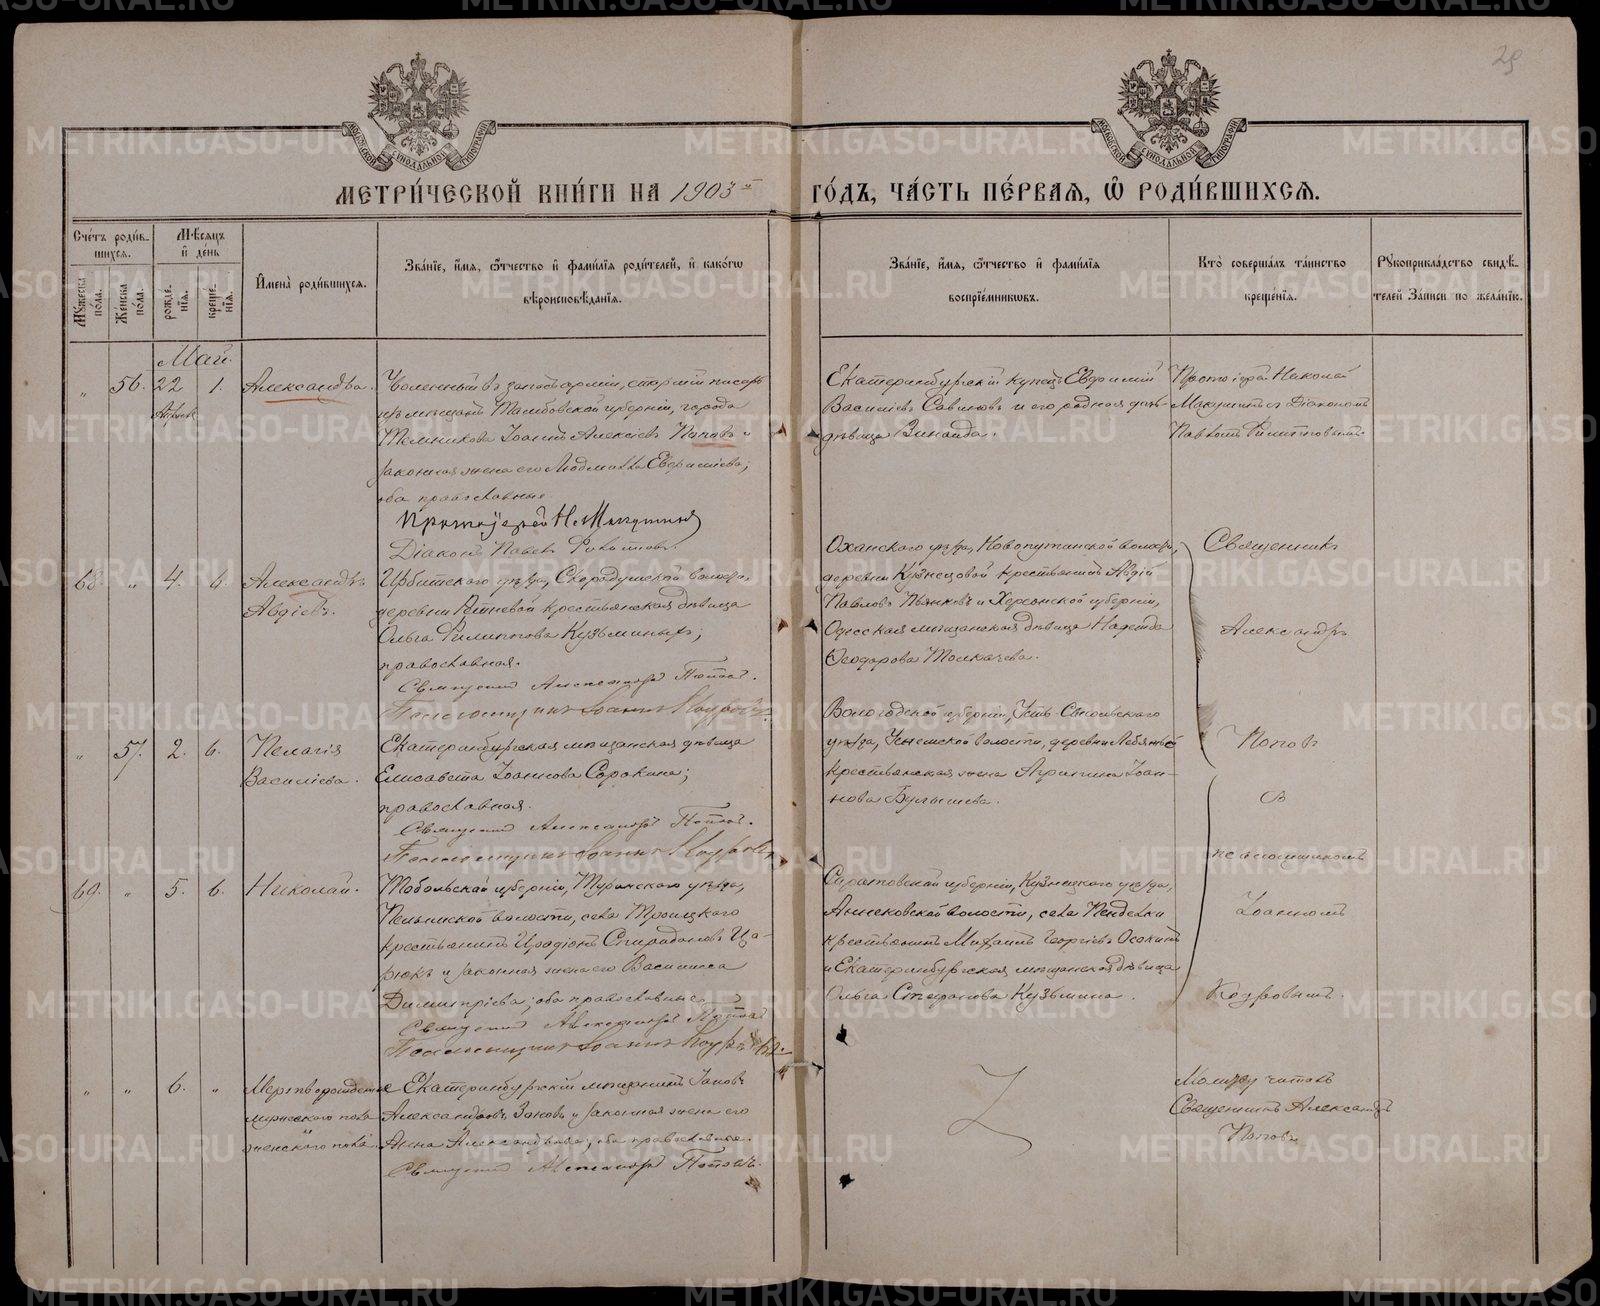 29
МЕТРИ́ЧЕСКОЙ КНИ́ГИ НА 1903 й
ГО́ДЪ, ЧА́СТЬ ПЕ́РВАЯ, Ѽ РОДИ́ВШИХСЯ.
Сче́тъ роди́вшихся.
Му́жеска по́ла.
Же́нска по́ла.
Мѣ́сяцъ и де́нь
рожде́нїя.
креще́нїя.
И҆мена̀ роди́вшихся.
Зва́нїе, и҆́мя, ѻ҆́тчество и҆ фами́лїя роди́телей, и҆ како́гѡ
вѣроисповѣ́данїя.
Зва́нїе, и҆́мя, ѻ҆́тчество и҆ фами́лїя
воспрїе́мникѡвъ.
Кто̀ соверша́лъ та́инство
креще́нїя.
Рꙋкоприкла́дство свидѣ́-
телей за́писи по жела́нїю.
Май.
" 56. 22 1. Александра.
Апрѣля
Уволенный въ запасъ арміи, старшій писарь
изъ мѣщанъ Тамбовской губерніи, города
Темникова Іоаннъ Алексіевъ Поповъ и
законная жена его Людмила Евфиміева;
оба православные.
Протоіерей Н. Макушинъ
Діаконъ Павелъ
Екатеринбургскій купецъ Евфимій
Василіевъ Савиновъ и его родная дочь
дѣвица Зинаида.
Протоіерей Николай
Макушинъ съ Діакономъ
Павломъ
68. " 4. 6. Александръ
Авдіевъ.
Ирбитскаго уѣзда, Скородумской волости,
деревни крестьянская дѣвица
Ольга Филиппова Кузьминыхъ;
православная.
Священникъ Александръ Поповъ.
Псаломщикъ Іоаннъ
Оханскаго уѣзда, Новопутинской волости,
деревни Кузнецовой крестьянинъ Авдій
Павловъ Пьянковъ и Херсонской губерніи,
Одесская мѣщанская дѣвица Надежда
Ѳеодорова Толкачева.
Священникъ
Александръ
Поповъ
съ
псаломщикомъ
Іоанномъ
" 57. 2. 6. Пелагія
Василіева.
Екатеринбургская мѣщанская дѣвица
Елисавета Іоаннова Сорокина;
православная.
Священникъ Александръ Поповъ.
Псаломщикъ Іоаннъ
Вологодской губерніи, Усть-Сысольскаго
уѣзда, волости, деревни
крестьянская жена Агрипина Іоан-
нова Булышева.
69. " 5. 6. Николай.
Тобольской губерніи, Туринскаго уѣзда,
Пелымской волости, села Троицкаго
крестьянинъ Иродіонъ Спиридоновъ Ца-
рюкъ и законная жена его Василисса
Димитріева; оба православные.
Священникъ Александръ Поповъ
Псаломщикъ Іоаннъ
Саратовской губерніи, Кузнецкаго уѣзда,
Анненковской волости, села Пенделки
крестьянинъ Михаилъ Георгіевъ Осокинъ
и Екатеринбургская мѣщанская дѣвица
Ольга Стефанова Кузьмина.
" " 6. " Мертворожденные
мужескаго пола
женскаго пола.
Екатеринбургскій мѣщанинъ Іаковъ
Александровъ Зыковъ и законная жена его
Анна Александрова; оба православные.
Священникъ Александръ Поповъ.
Молитву читалъ
Священникъ Александръ
Поповъ
METRIKI.GASO-URAL.RU